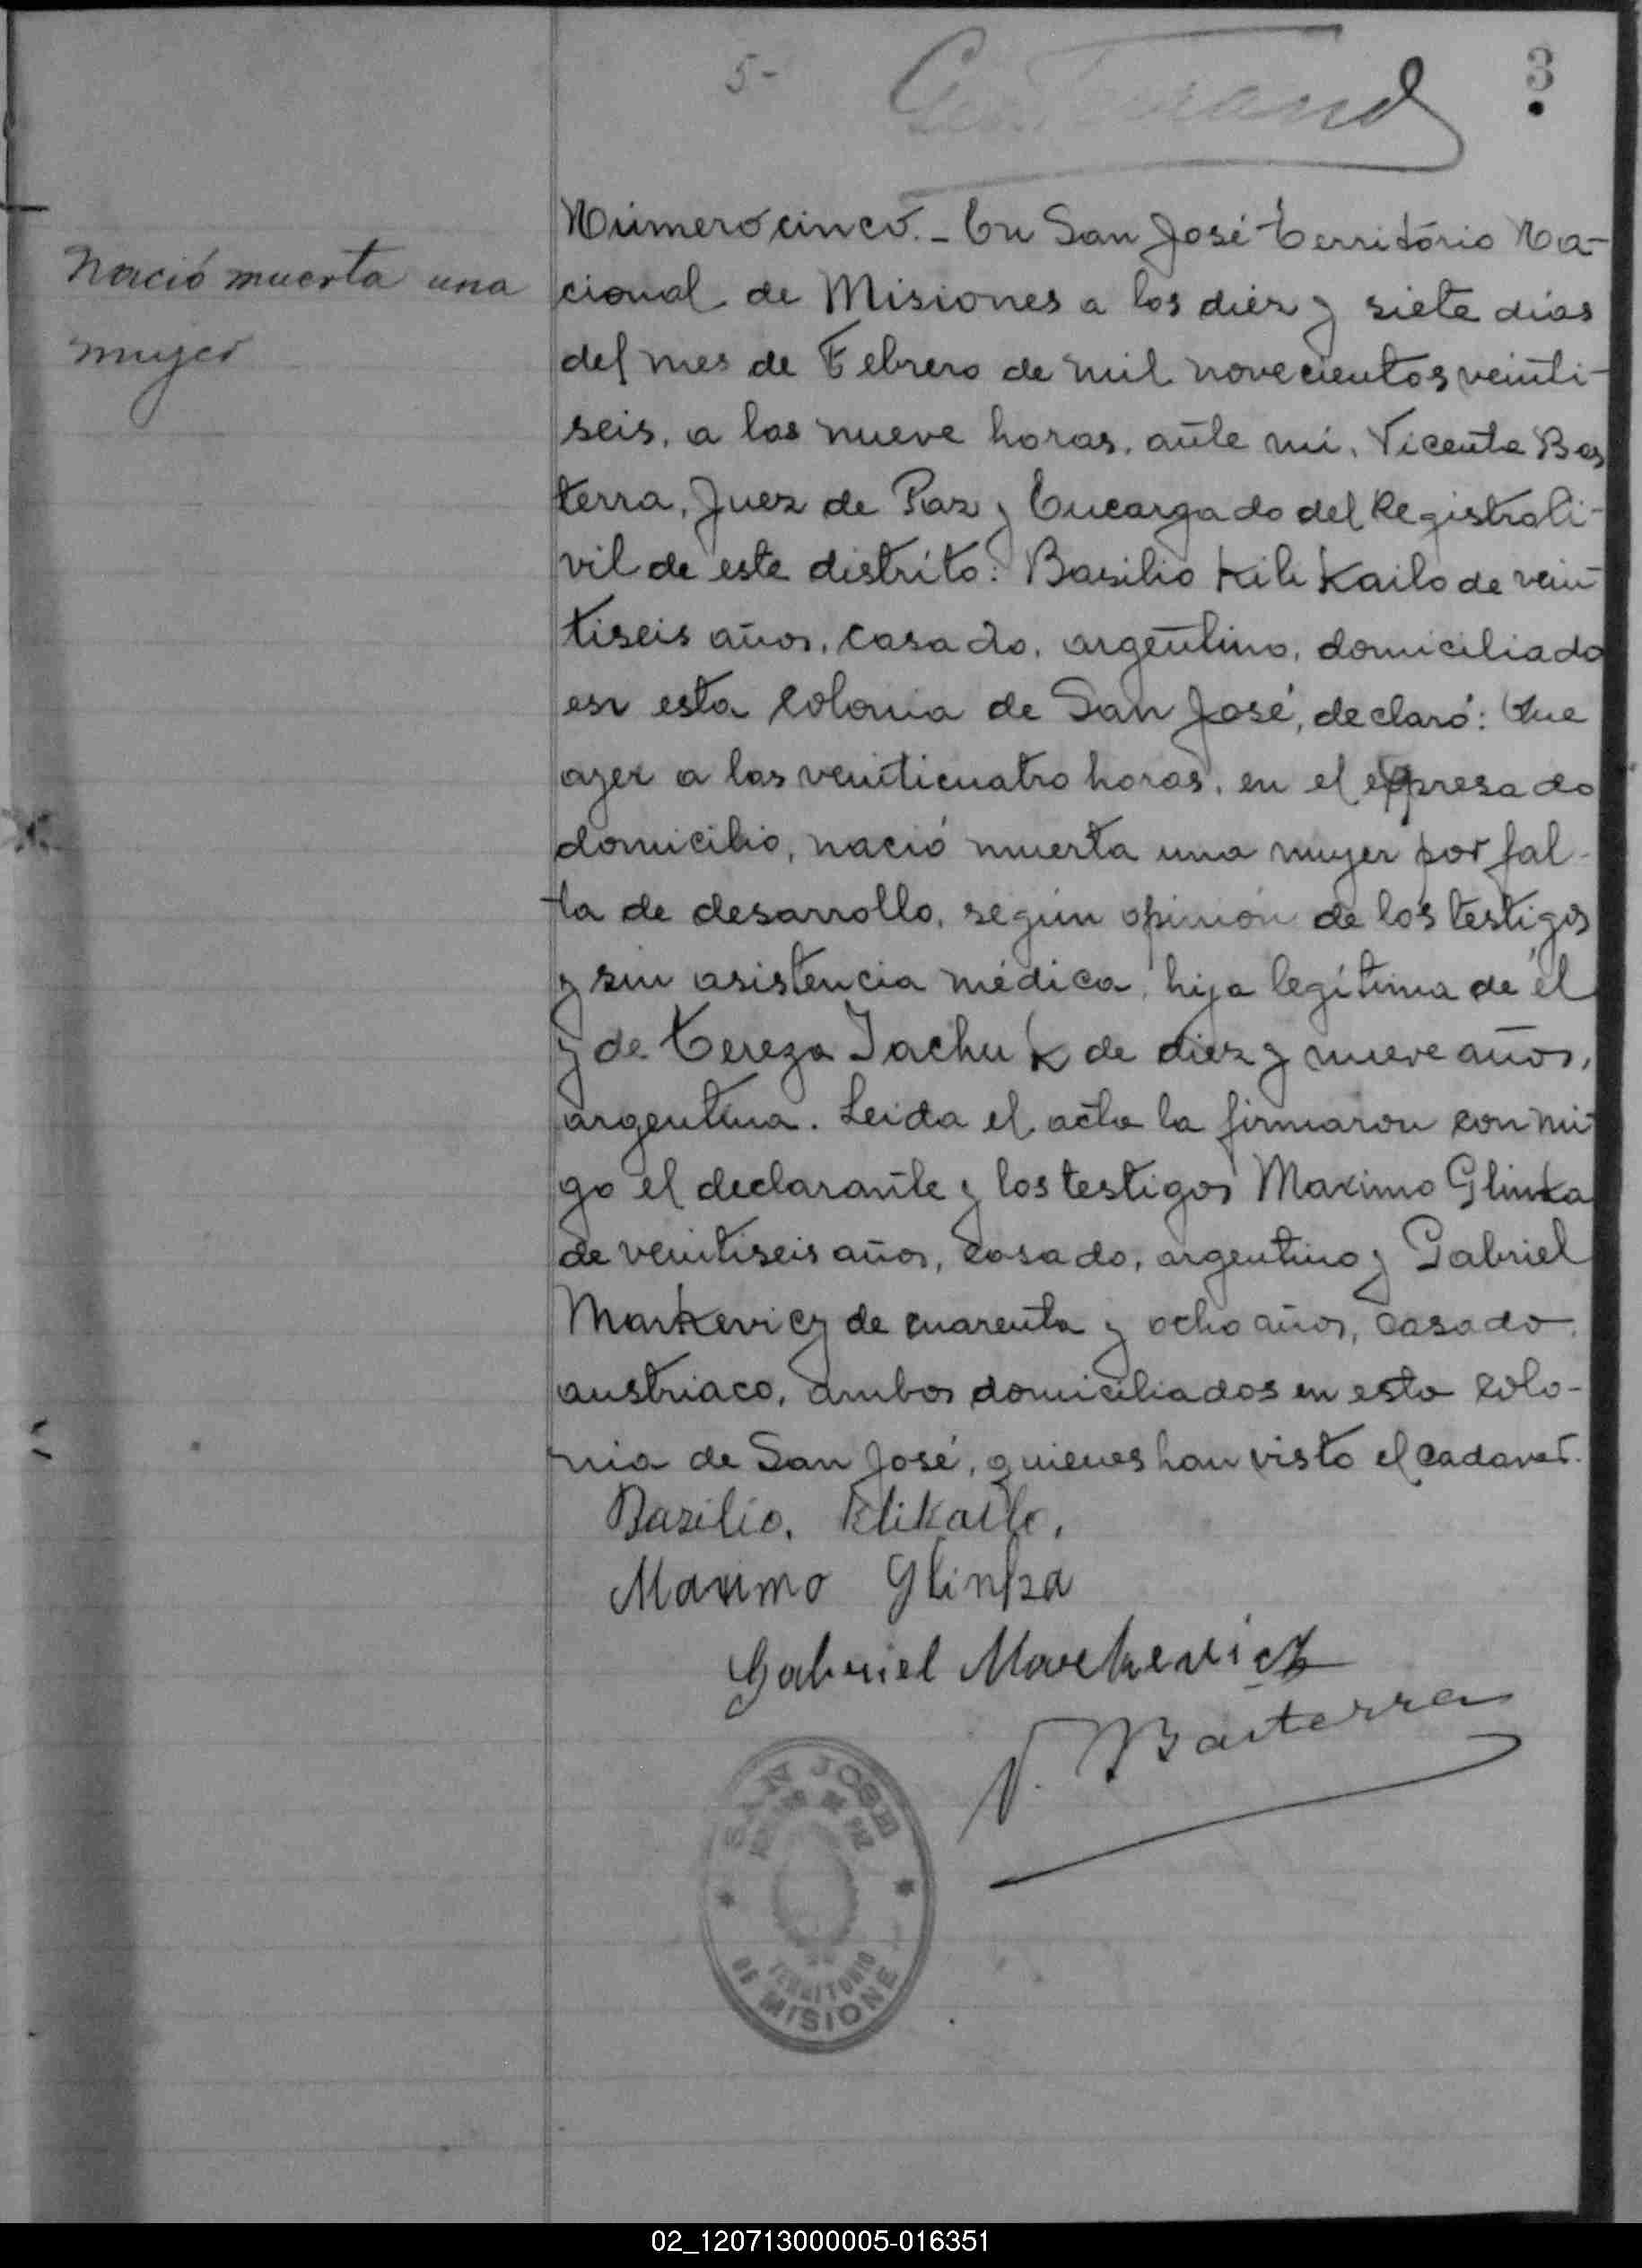 5-
3
Nació muerta una
mujer
Número cinco. - En San José Territorio Na-
cional de Misiones a los diez y siete días
del mes de Febrero de mil novecientos veinti-
seis, a las nueve horas, ante mí, Vicente Bas
terra, Juez de Paz y Encargado del Registro Ci-
vil de este distrito: Basilio Kili Kailo de vein
tiseis años, casado, argentino, domiciliado
en esta colonia de San José, declaró: Que
ayer a las veinticuatro horas, en el expresado
domicilio, nació muerta una mujer por fal-
ta de desarrollo, según opinión de los testigos
y sin asistencia médica, hija legítima de él
y de Tereza Jachuk de diez y nueve años,
argentina. Leida el acta la firmaron conmi-
go el declarante y los testigos Maximo Glinka
de veintiseis años, casado, argentino y Gabriel
Markevicz de cuarenta y ocho años, casado,
austriaco, ambos domiciliados en esta colo-
nia de San José, quienes han visto el cadaver.
Bazilio. Klikailo.
Maximo Glinka
Gabriel Markevicz
V. Basterra
SAN JOSE
TERRITORIO
DE MISIONE
02_120713000005-016351